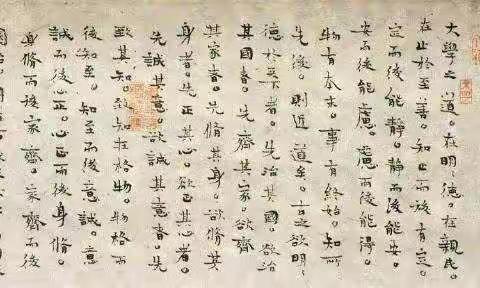 大學之道。在明々德在親民。
在止於至善。知止而後有定。
定而後能靜。靜而後能安。
安而後能慮。慮而後能得。
物有本末。事有終始。知所
先後。則近道矣。古之欲明々
德於天下者。先治其國。欲治
其國者。先齊其家。欲齊
其家者。先脩其身。欲脩其
身者。先正其心。欲正其心者。
先誠其意。欲誠其意者。先
致其知。致知在格物。物格而
後知至。知至而後意誠。意
誠而後心正。心正而後身脩。
身脩而後家齊。家齊而後